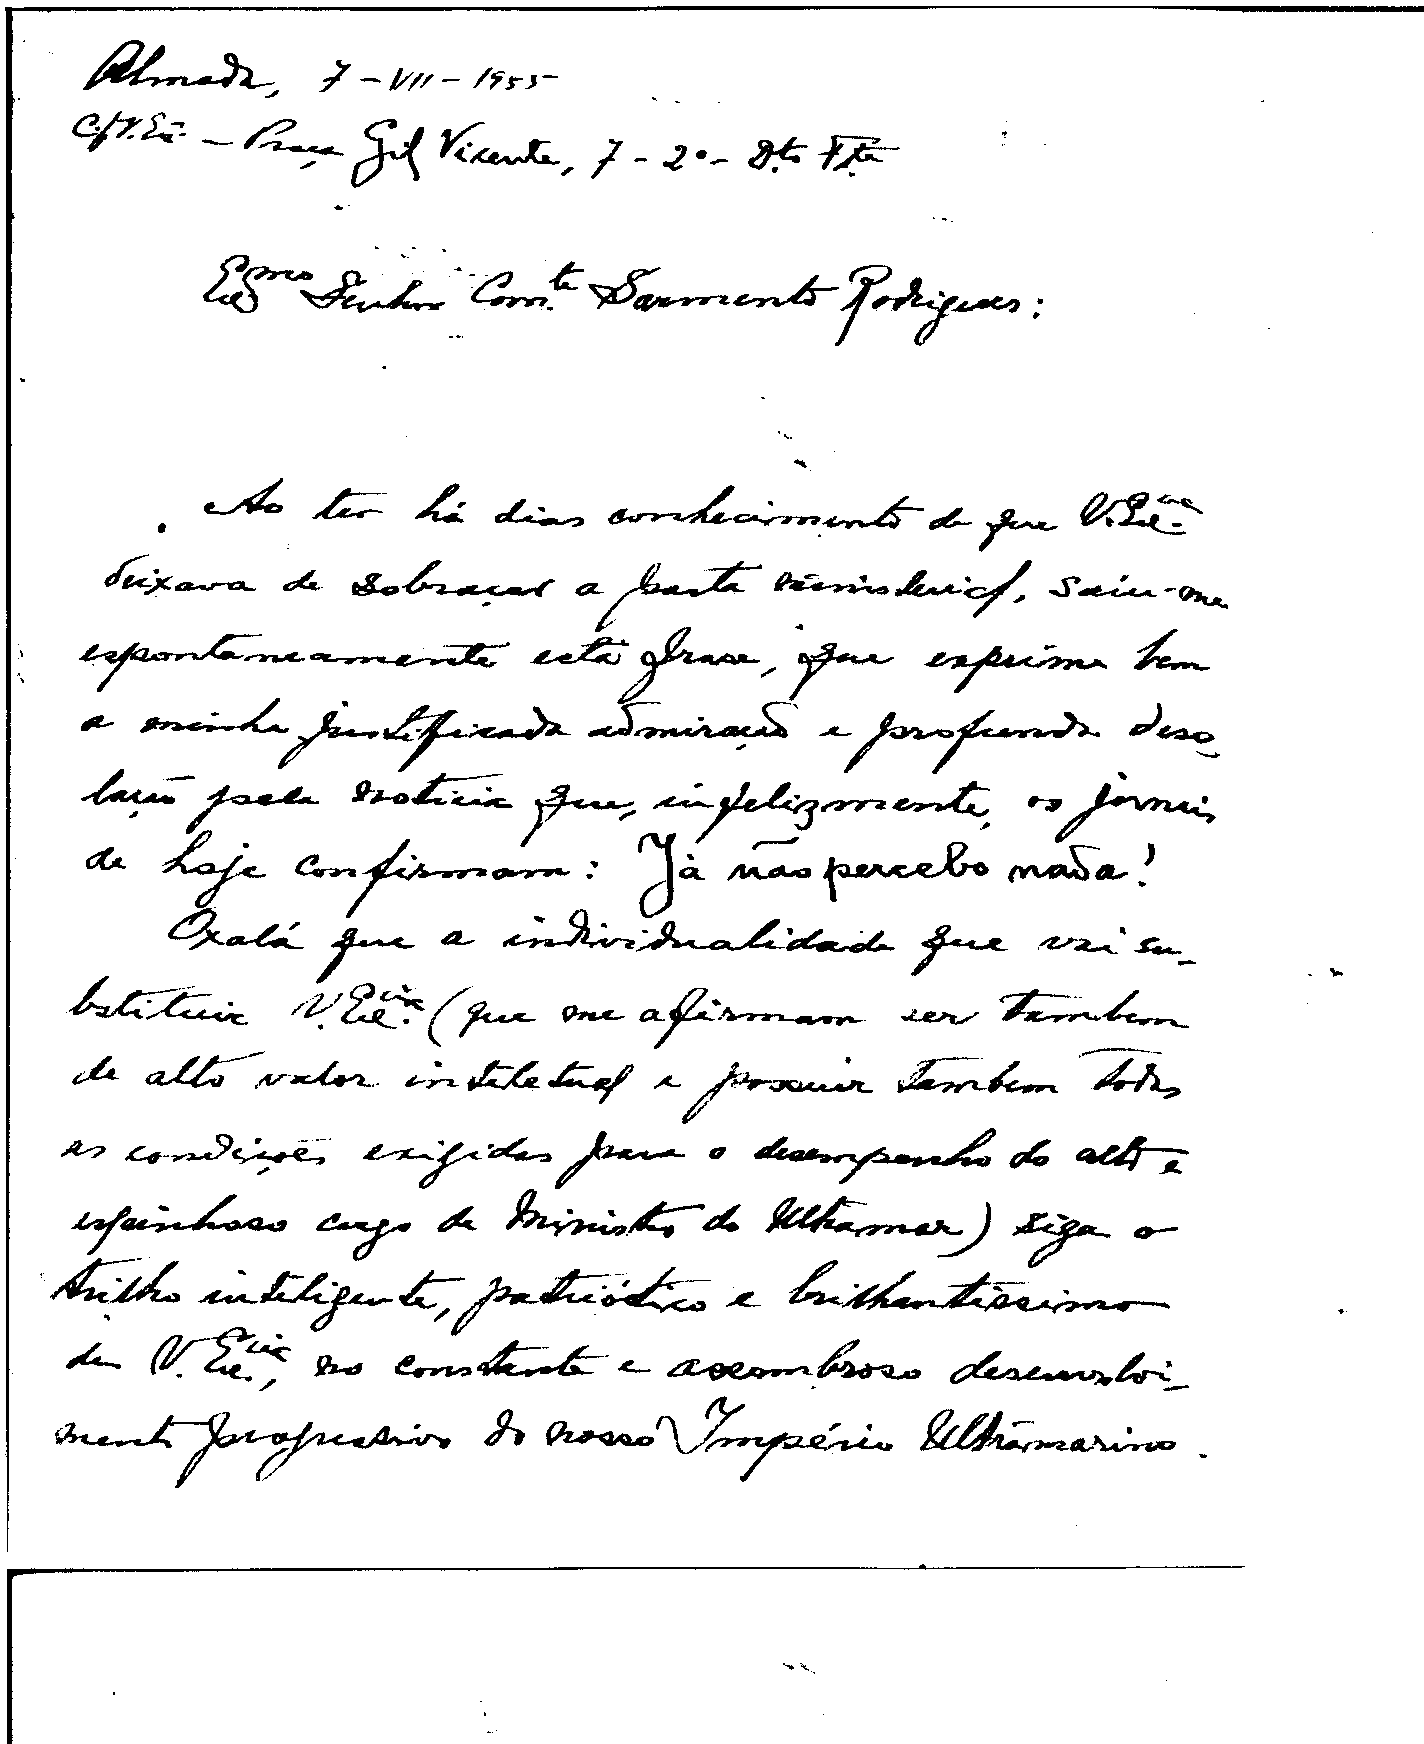 Almada, 7-VII-1955
C/V. Exª. - Praça Gil Vicente, 7-2º- Dto Fte
Exmo Senhor Comte Sarmento Rodrigues:
Ao ter há dias conhecimento de que V. Excia.
deixava de sobraçar a pasta ministerial, saiu-me
espontaneamente esta frase, que exprime bem
a minha justificada admiração e profunda deso-
lação pela noticia que, infelizmente, os jornais
de hoje confirmam: Já não percebo nada!
Oxalá que a individualidade que vai su-
bstituir V. Excia. (que me afirmam ser tambem
de alto valor inteletual e possuir tambem todas
as condições exigidas para o desempenho do alto e
espinhoso cargo de Ministro do Ultramar) siga o
trilho inteligente, patriótico e brilhantissimo
de V. Excia., no constante e assombroso desenvolvi-
mento progressivo do nosso Império Ultramarino.